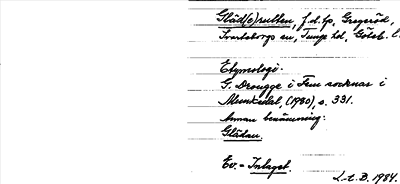 Gläd(e)rulten, f.d. tp, Gregeröd,
Svarteborgs sn, Tunge hd, Göteb. l.
Etymologi:
G. Drougge i Fem socknar i
Munkedal, (1980), s. 331.
Annan benämning:
Glädan.
Ev. = Inlaget.
L-t. B. 1984.